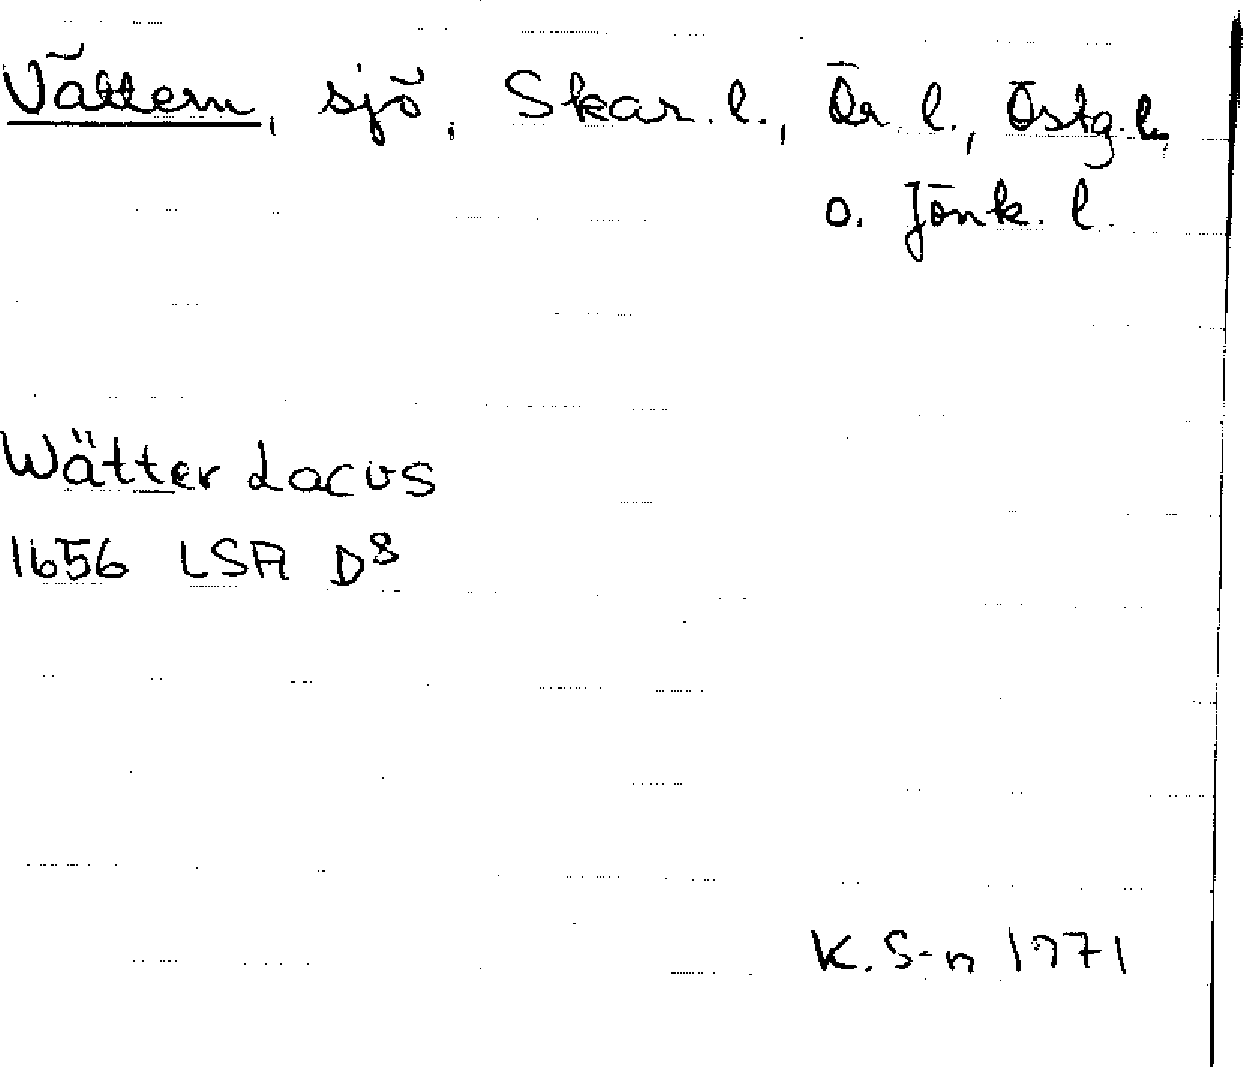 Vättern, sjö, Skar. l., Ör. l., Östg. l.,
o. Jönk. l.
Wätter Lacus
1656 LSA D8
K. S-n 1971